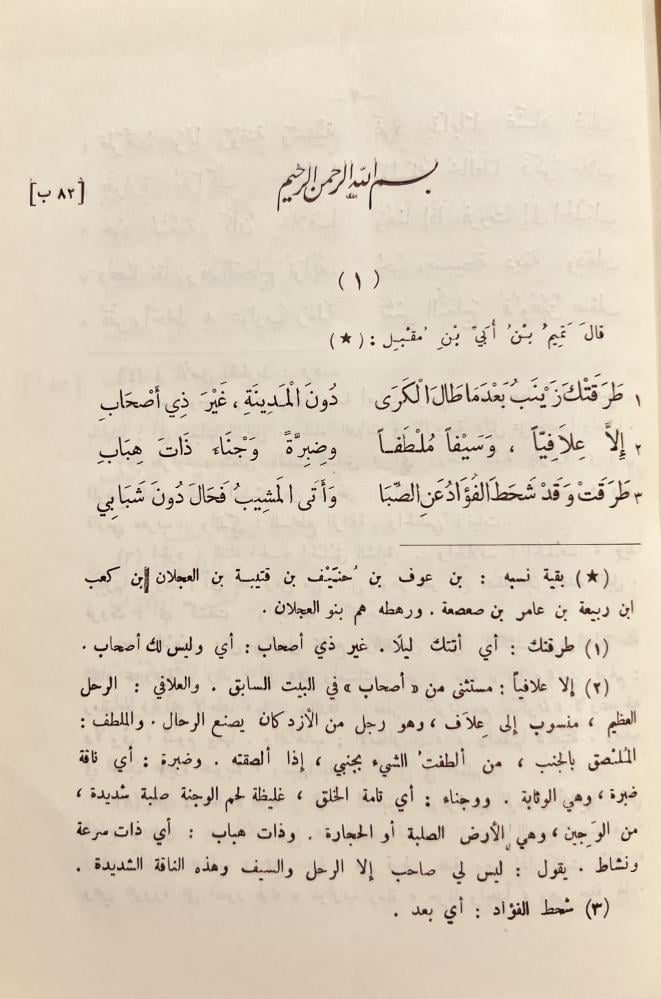 بسم الله الرحمن الرحيم
[ ٨٢ ب ]
( ١ )
قالَ تَمِيمُ بْنُ أُبَيِّ بْنِ مُقْبِل : ( ★ )
١ طَرَقَتْكَ زَيْنَبُ بَعْدَمَا طَالَ الْكَرَى دُونَ الْمَدِينَةِ ، غَيْرَ ذِي أَصْحَابِ
٢ إِلاَّ عِلاَفِيّاً ، وَسَيْفاً مُلْطَفاً وضِبِرَّةً وَجْنَاءَ ذَاتَ هِبَابِ
٣ طَرَقَتْ وَقَدْ شَحَطَ الفُؤَادُ عَنِ الصِّبَا وَأَتَى الْمَشِيبُ فَحَالَ دُونَ شَبَابِي
( ★ ) بقية نسبه : بن عوف بن حُنَيْف بن قتيبة بن العجلان بن كعب
ابن ربيعة بن عامر بن صعصعة . ورهطه هم بنو العجلان .
(١) طرقتك : أي أتتك ليلًا . غير ذي أصحاب : أي وليس لك أصحاب .
(٢) إلا علافياً : مستثنى من « أصحاب » في البيت السابق . والعلافي : الرحل
العظيم ، منسوب إلى عِلاَف ، وهو رجل من الأزد كان يصنع الرحال . والملطف :
المُلتصق بالجنب ، من ألطفتُ الشيء بجنبي ، إذا ألصقته . وضبرة : أي ناقة
ضبرة ، وهي الوثابة . ووجناء : أي تامة الخلق ، غليظة لحم الوجنة صلبة شديدة ،
من الوَجين ، وهي الأرض الصلبة أو الحجارة . وذات هباب : أي ذات سرعة
ونشاط . يقول : ليس لي صاحب إلا الرحل والسيف وهذه الناقة الشديدة .
(٣) شحط الفؤاد : أي بعد .